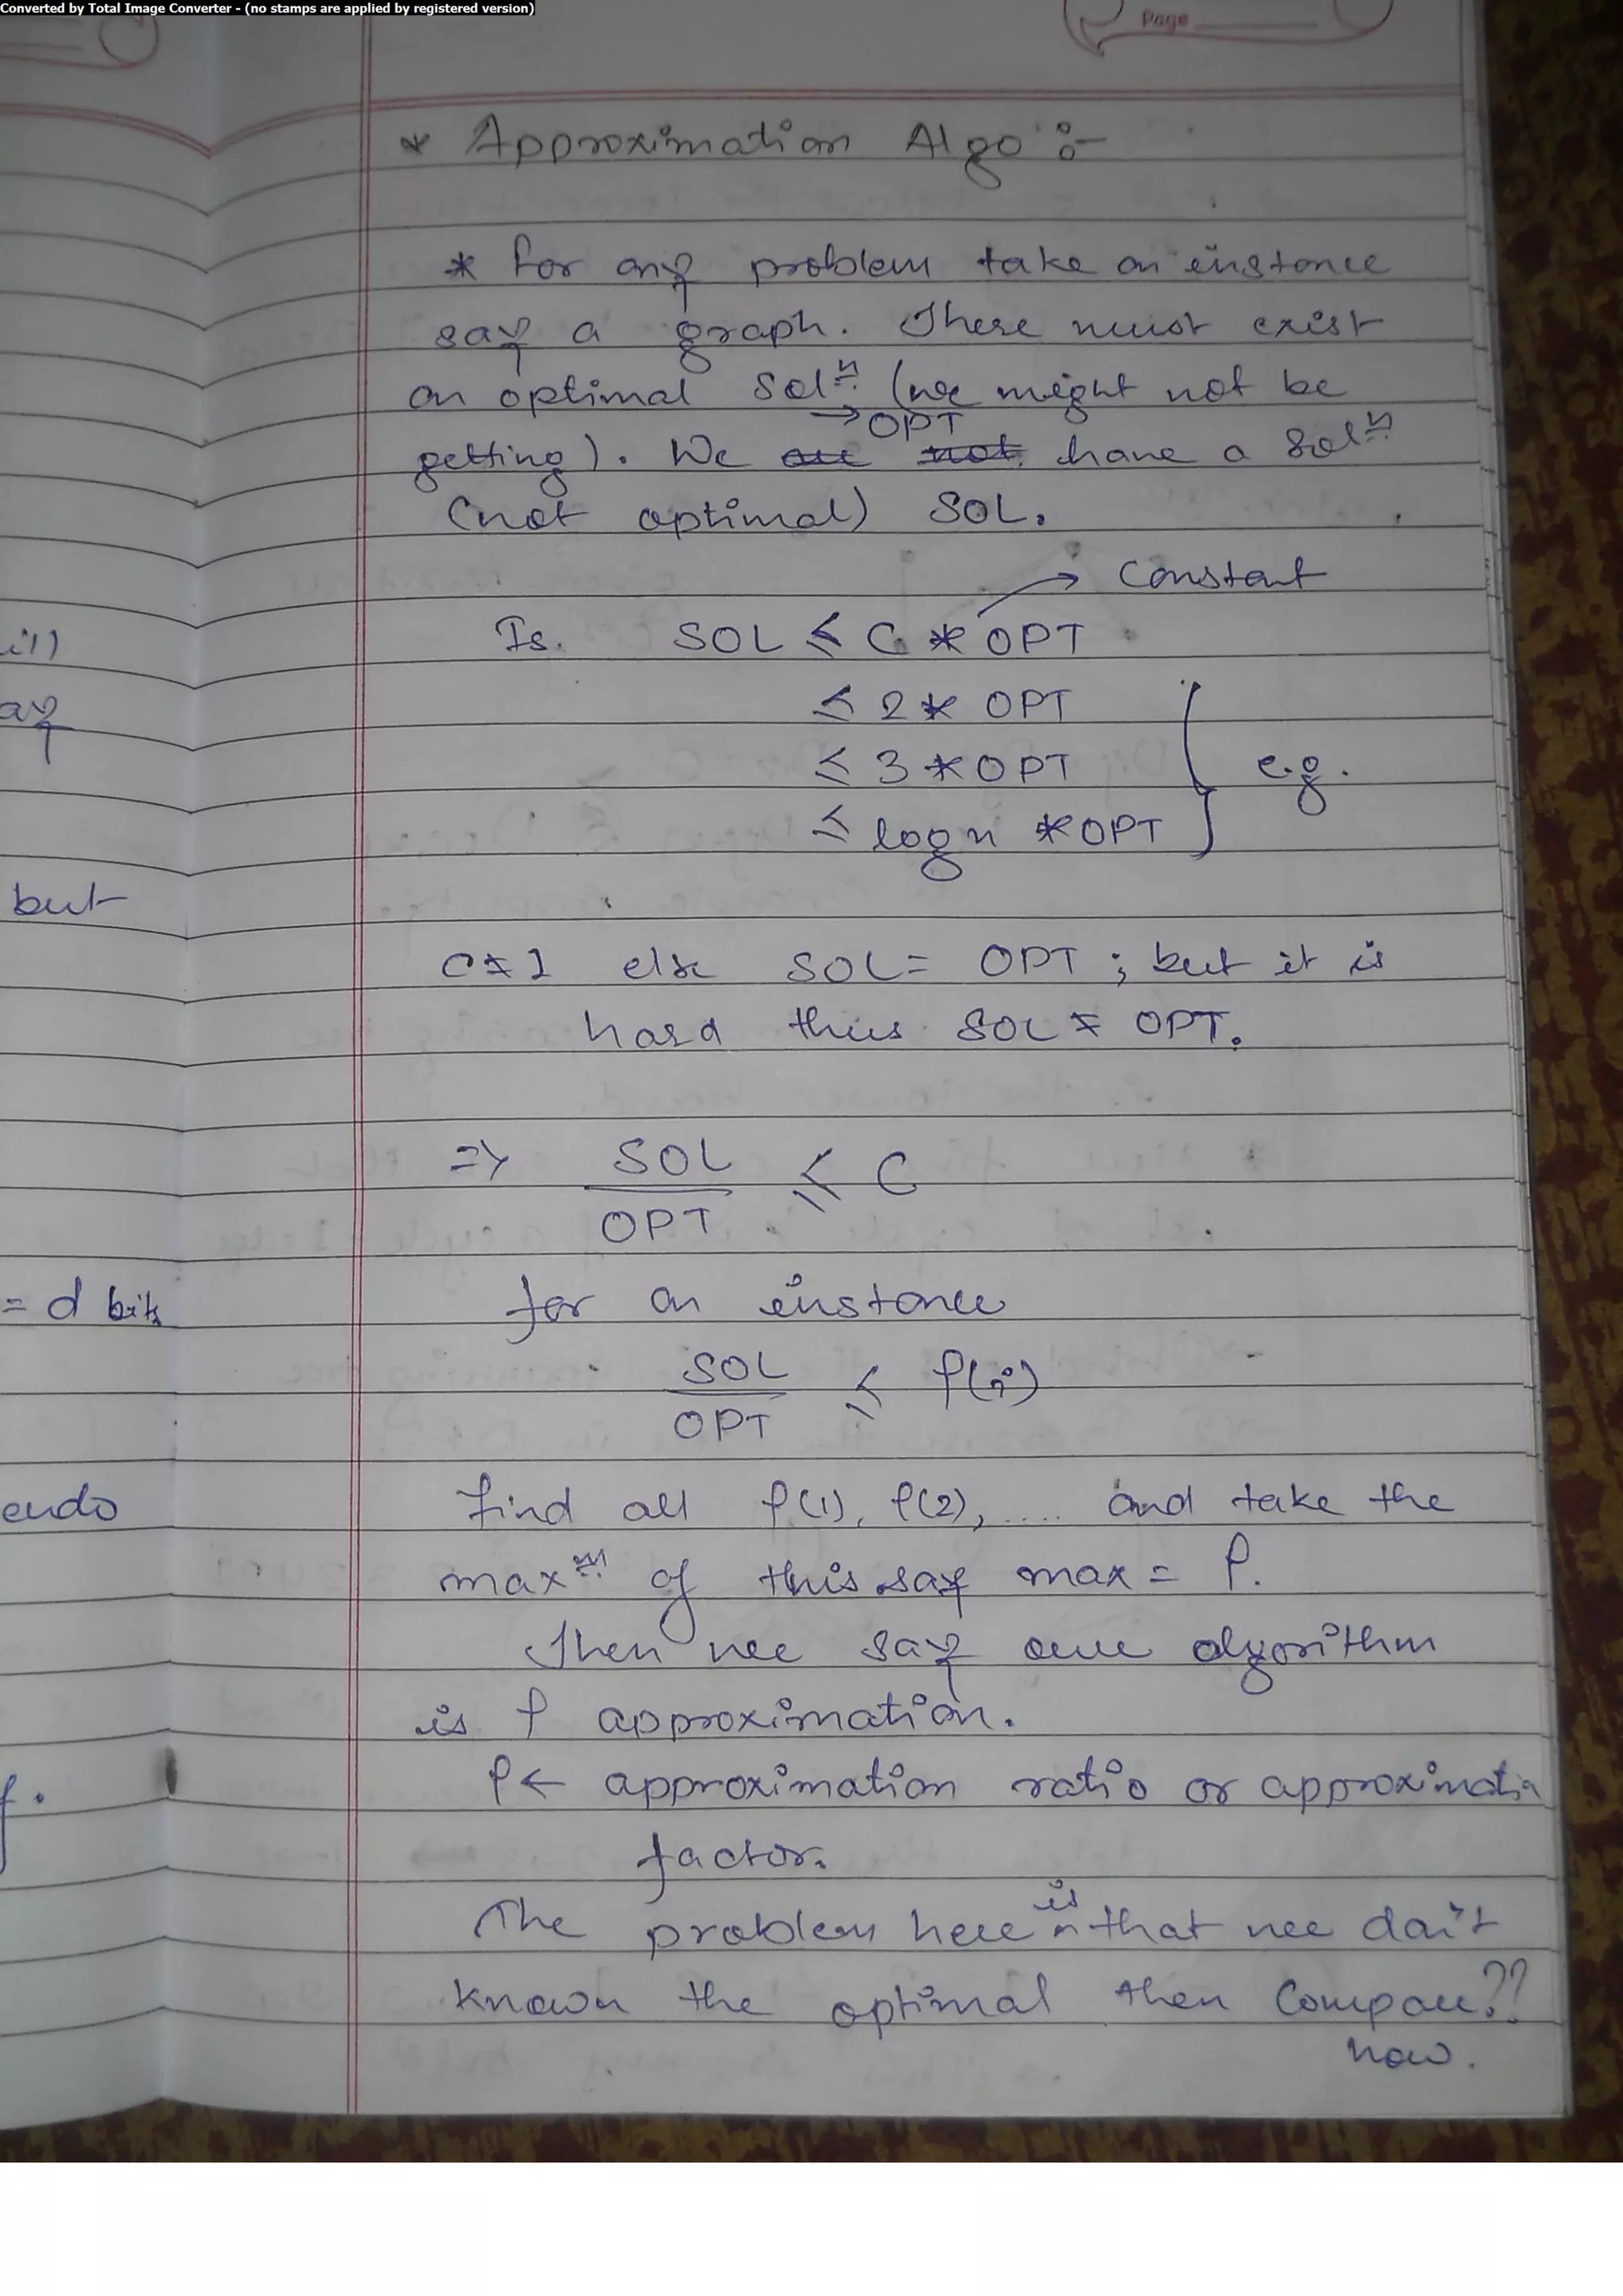 Converted by Total Image Converter - (no stamps are applied by registered version)
Page
* Approximation Algo :-
* for any problem take an instance
say a graph. There must exist
an optimal solⁿ (we might not be
→ OPT
getting). We are not have a solⁿ
(not optimal) SOL.
→ Constant
Is. SOL ≤ C * OPT
≤ 2 * OPT
≤ 3 * OPT e.g.
≤ log n * OPT
C ≠ 1 else SOL = OPT ; but it is
hard thus SOL ≠ OPT.
=> SOL / OPT ≤ C
for an instance
SOL / OPT ≤ ρ(i)
find all ρ(1), ρ(2), .... and take the
maxᵐ of this say max = ρ.
Then we say our algorithm
is ρ approximation.
ρ ← approximation ratio or approximatin
factor.
The problem here is that we don't
known the optimal then Compare??
how.
but
= d bits
endo